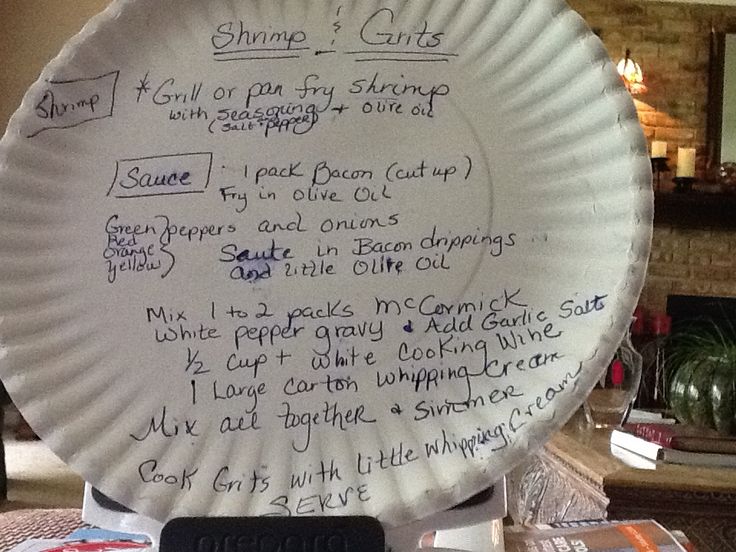 Shrimp & Grits
Shrimp
* Grill or pan fry shrimp
with seasoning + olive oil
(salt + pepper)
Sauce
1 pack Bacon (cut up)
Fry in olive Oil
Green
Red
Orange
Yellow
peppers and onions
Saute in Bacon drippings ..
and little Olive Oil
Mix 1 to 2 packs McCormick
White pepper gravy & Add Garlic Salt
1/2 cup + white Cooking Wine
1 Large carton whipping cream
Mix all together & Simmer
Cook Grits with little whipping cream
SERVE
prepara